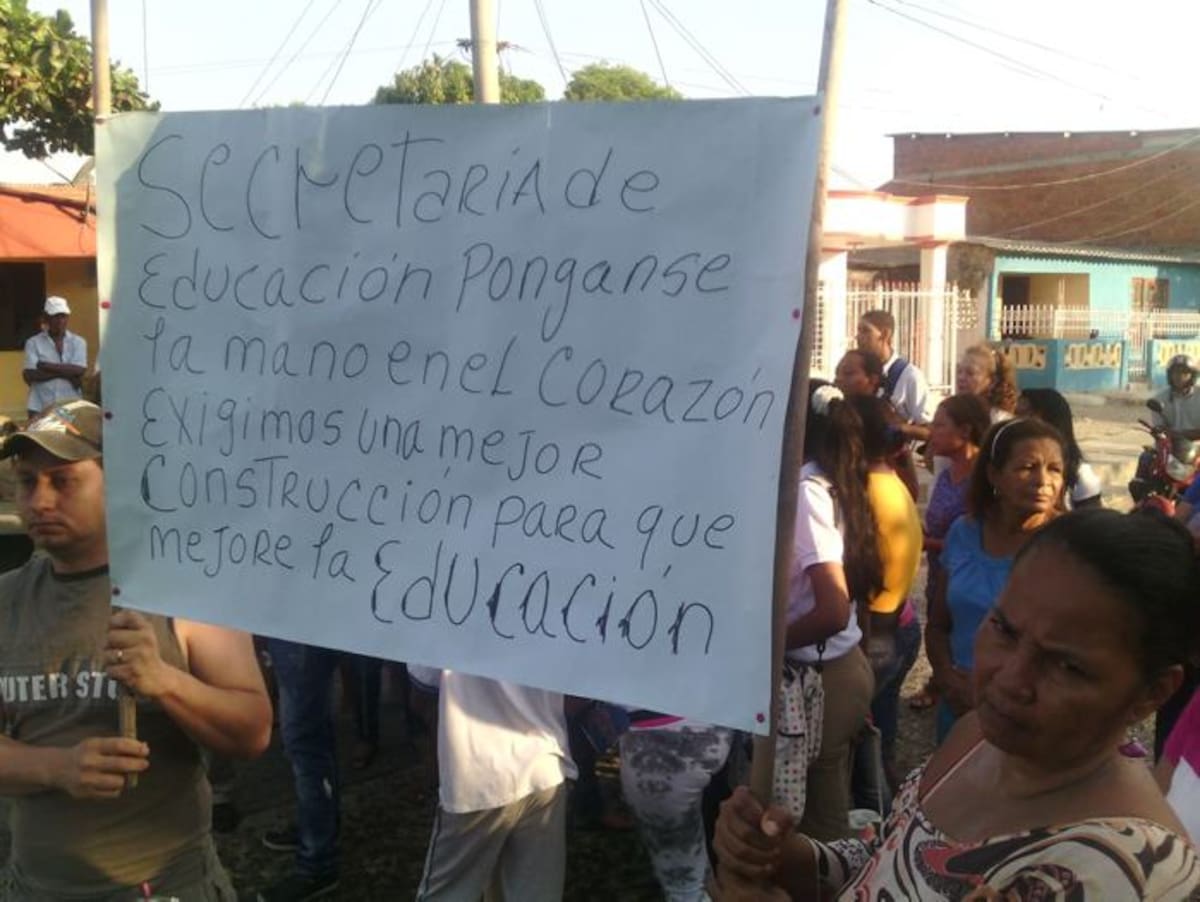 Secretaría de
Educación Ponganse
la mano en el Corazón
Exigimos una mejor
Construcción para que
mejore la Educación
UTER ST